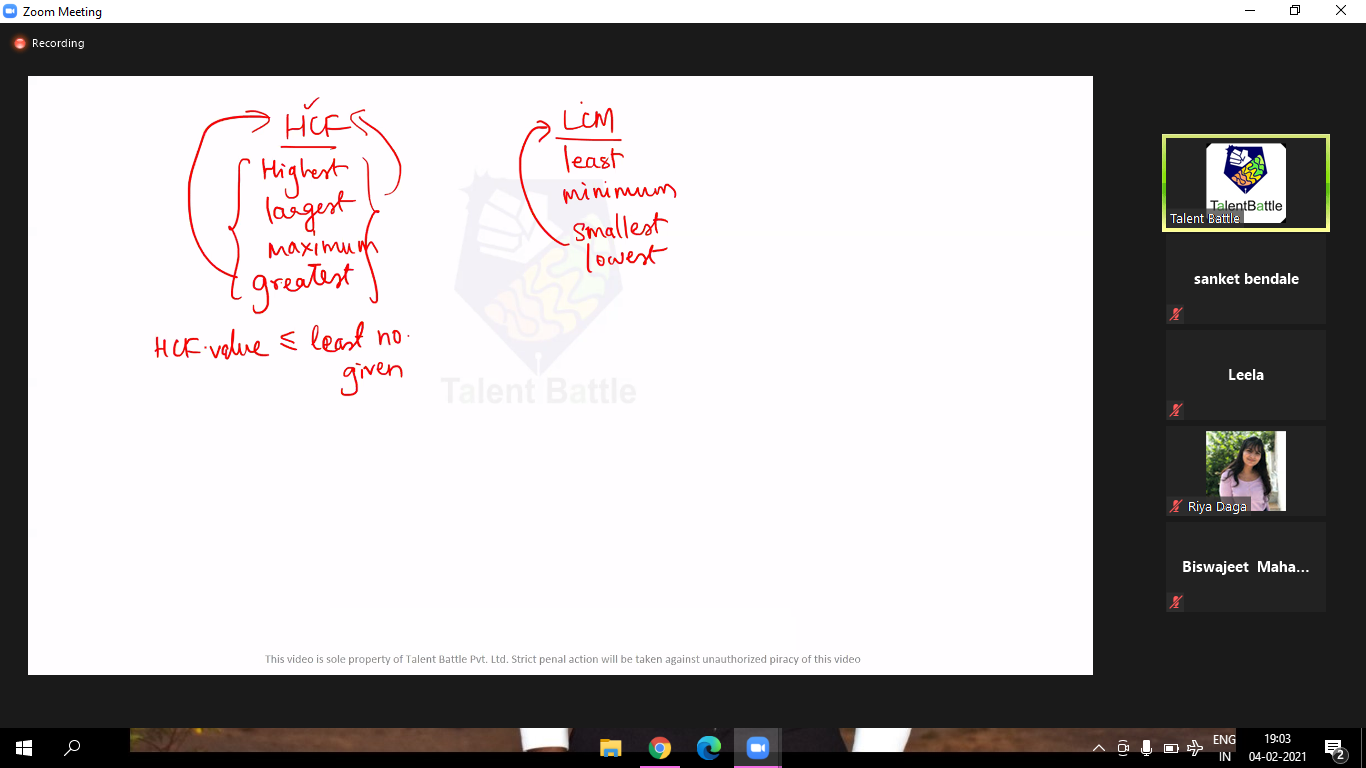 Zoom Meeting
Recording
HCF
Highest
largest
maximum
greatest
HCF value ≤ least no.
given
LCM
least
minimum
smallest
lowest
Talent Battle
This video is sole property of Talent Battle Pvt. Ltd. Strict penal action will be taken against unauthorized piracy of this video
TalentBattle
Talent Battle
sanket bendale
Leela
Riya Daga
Biswajeet Maha...
ENG
IN
19:03
04-02-2021
2